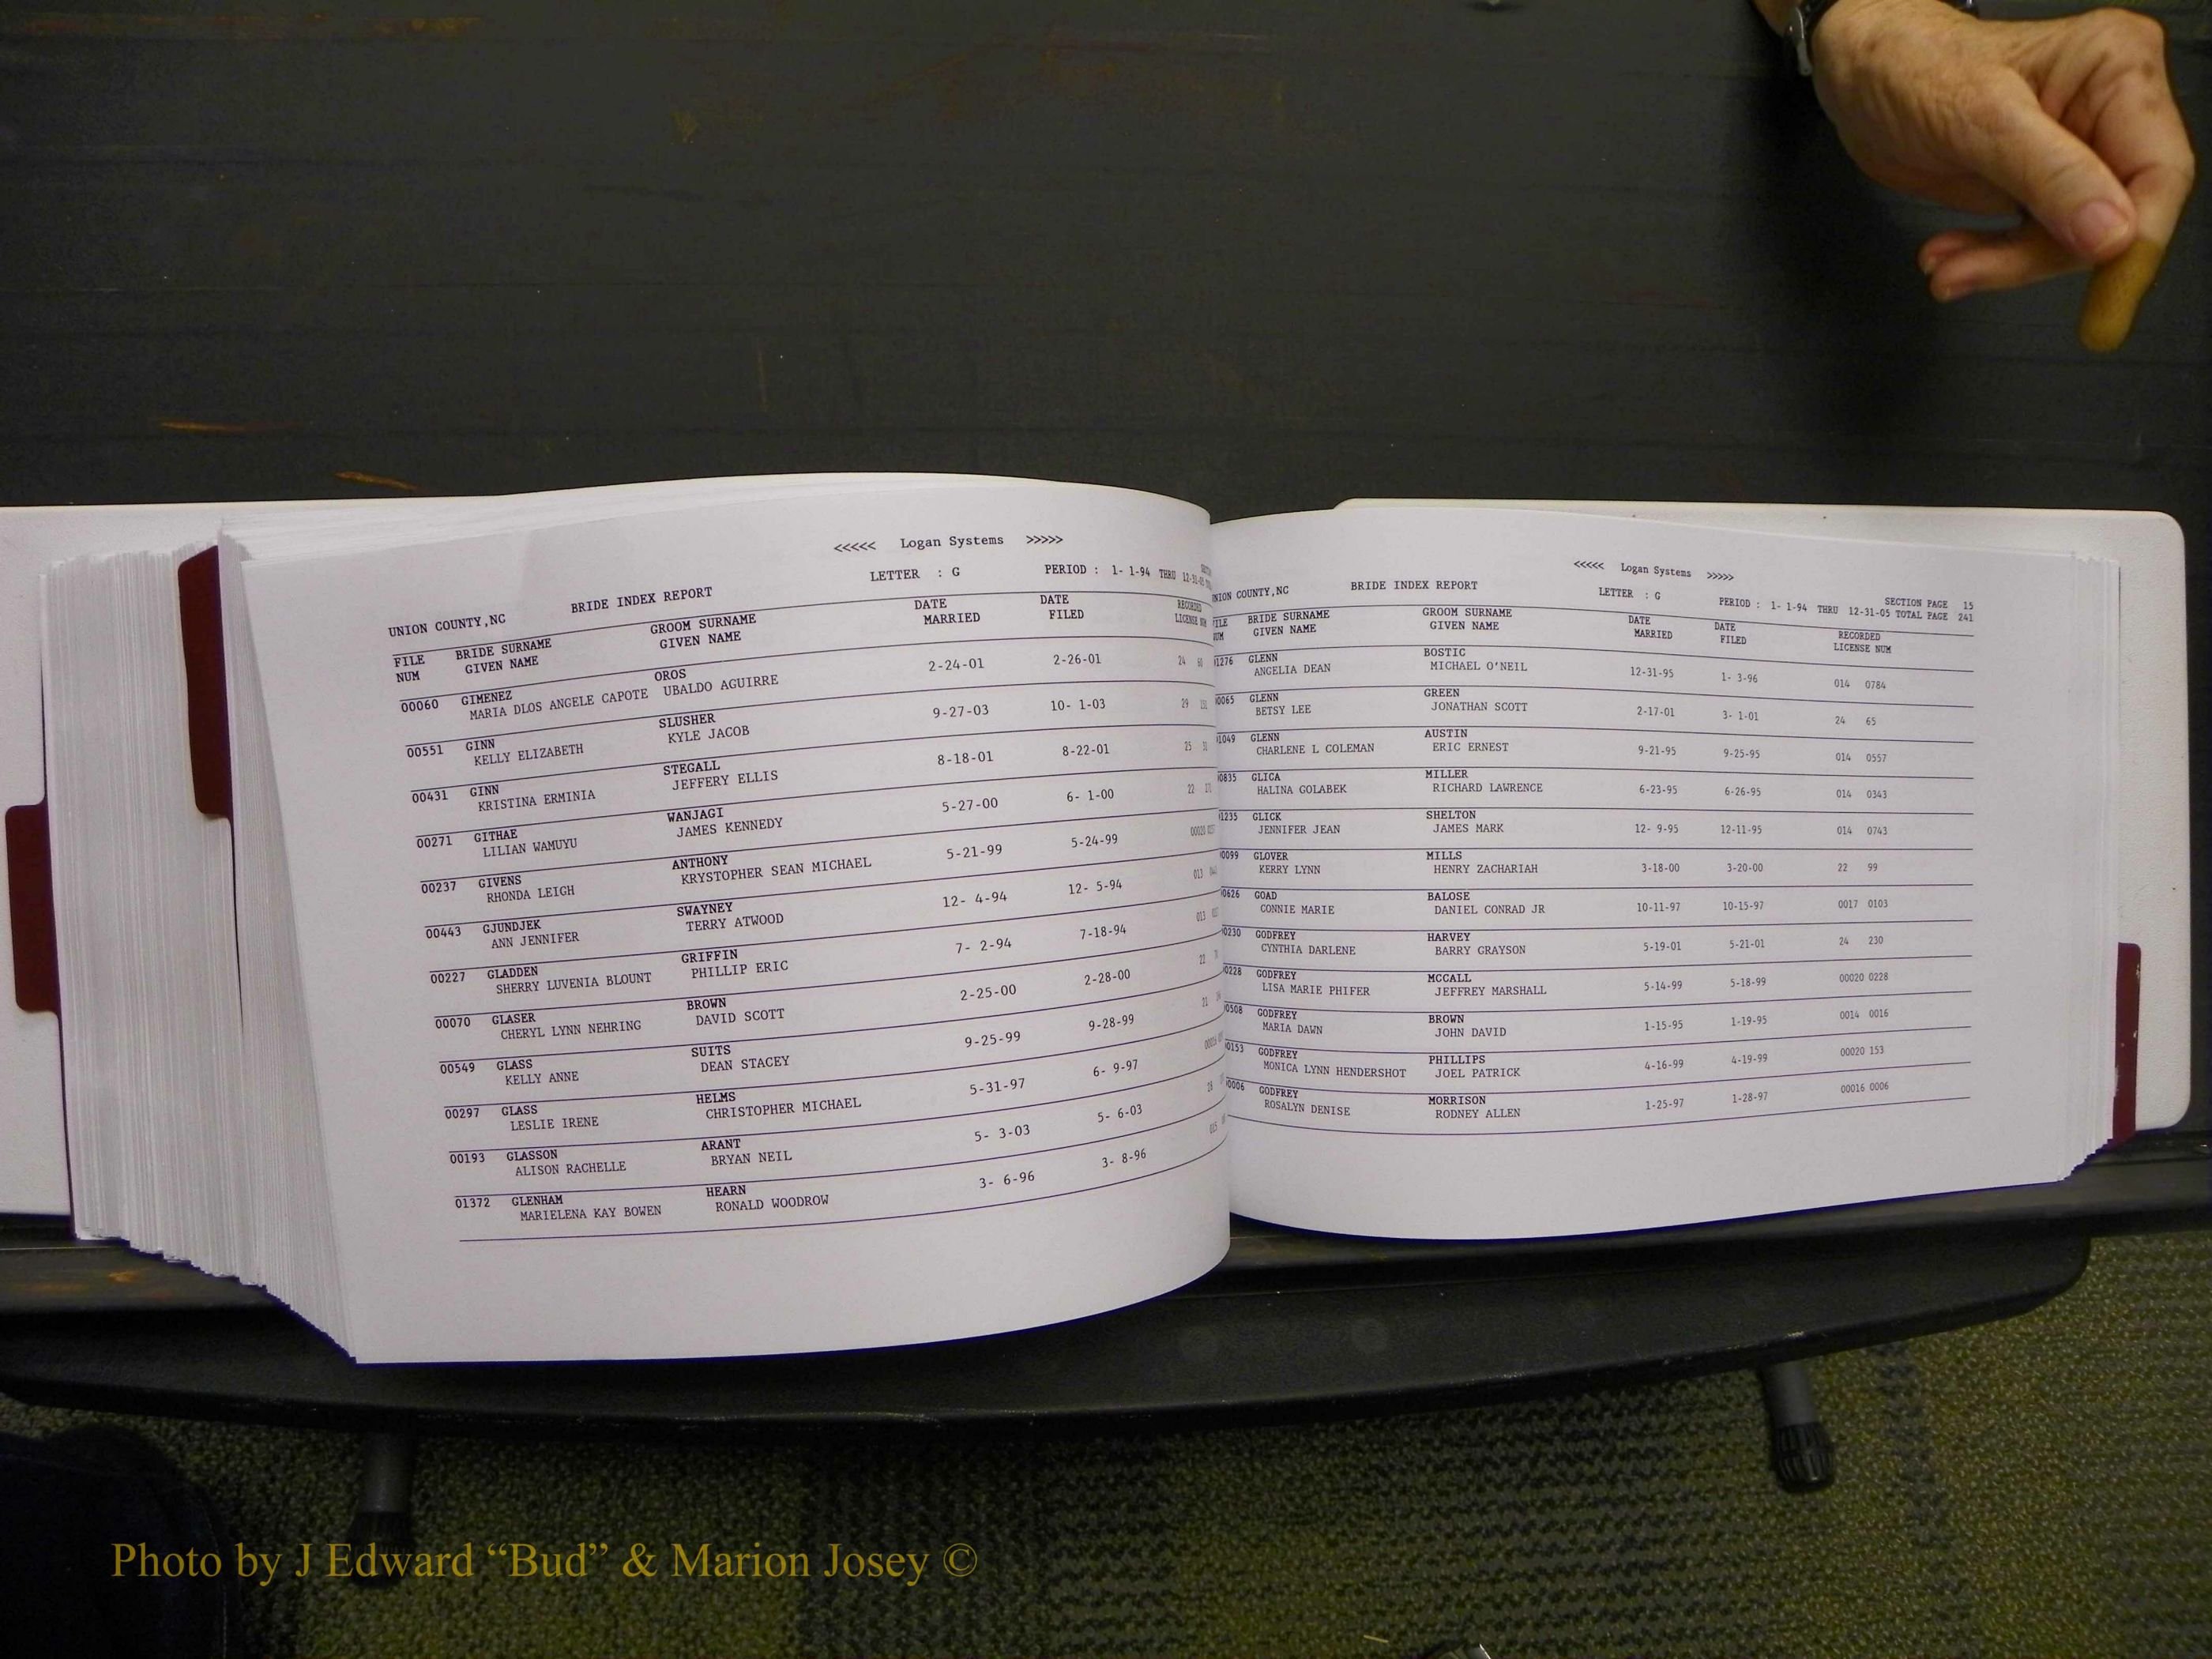 <<<<< Logan Systems >>>>>
LETTER : G PERIOD : 1- 1-94 THRU
UNION COUNTY,NC BRIDE INDEX REPORT
FILE BRIDE SURNAME GROOM SURNAME DATE DATE RECORDED
NUM GIVEN NAME GIVEN NAME MARRIED FILED LICENSE NUM
00060 GIMENEZ OROS 2-24-01 2-26-01 24
MARIA DLOS ANGELE CAPOTE UBALDO AGUIRRE
00551 GINN SLUSHER 9-27-03 10- 1-03 29
KELLY ELIZABETH KYLE JACOB
00431 GINN STEGALL 8-18-01 8-22-01 25
KRISTINA ERMINIA JEFFERY ELLIS
00271 GITHAE WANJAGI 5-27-00 6- 1-00 22
LILIAN WAMUYU JAMES KENNEDY
00237 GIVENS ANTHONY 5-21-99 5-24-99
RHONDA LEIGH KRYSTOPHER SEAN MICHAEL
00443 GJUNDJEK SWAYNEY 12- 4-94 12- 5-94 013
ANN JENNIFER TERRY ATWOOD
00227 GLADDEN GRIFFIN 7- 2-94 7-18-94 013
SHERRY LUVENIA BLOUNT PHILLIP ERIC
00070 GLASER BROWN 2-25-00 2-28-00 22
CHERYL LYNN NEHRING DAVID SCOTT
00549 GLASS SUITS 9-25-99 9-28-99
KELLY ANNE DEAN STACEY
00297 GLASS HELMS 5-31-97 6- 9-97
LESLIE IRENE CHRISTOPHER MICHAEL
00193 GLASSON ARANT 5- 3-03 5- 6-03 28
ALISON RACHELLE BRYAN NEIL
01372 GLENHAM HEARN 3- 6-96 3- 8-96
MARIELENA KAY BOWEN RONALD WOODROW
<<<<< Logan Systems >>>>>
UNION COUNTY,NC BRIDE INDEX REPORT LETTER : G SECTION PAGE 15
PERIOD : 1- 1-94 THRU 12-31-05 TOTAL PAGE 241
FILE BRIDE SURNAME GROOM SURNAME DATE DATE RECORDED
NUM GIVEN NAME GIVEN NAME MARRIED FILED LICENSE NUM
01276 GLENN BOSTIC 12-31-95 1- 3-96 014 0784
ANGELIA DEAN MICHAEL O'NEIL
00065 GLENN GREEN 2-17-01 3- 1-01 24 65
BETSY LEE JONATHAN SCOTT
01049 GLENN AUSTIN 9-21-95 9-25-95 014 0557
CHARLENE L COLEMAN ERIC ERNEST
00835 GLICA MILLER 6-23-95 6-26-95 014 0343
HALINA GOLABEK RICHARD LAWRENCE
01235 GLICK SHELTON 12- 9-95 12-11-95 014 0743
JENNIFER JEAN JAMES MARK
00099 GLOVER MILLS 3-18-00 3-20-00 22 99
KERRY LYNN HENRY ZACHARIAH
00626 GOAD BALOSE 10-11-97 10-15-97 0017 0103
CONNIE MARIE DANIEL CONRAD JR
00230 GODFREY HARVEY 5-19-01 5-21-01 24 230
CYNTHIA DARLENE BARRY GRAYSON
00228 GODFREY MCCALL 5-14-99 5-18-99 00020 0228
LISA MARIE PHIFER JEFFREY MARSHALL
00508 GODFREY BROWN 1-15-95 1-19-95 0014 0016
MARIA DAWN JOHN DAVID
00153 GODFREY PHILLIPS 4-16-99 4-19-99 00020 153
MONICA LYNN HENDERSHOT JOEL PATRICK
00006 GODFREY MORRISON 1-25-97 1-28-97 00016 0006
ROSALYN DENISE RODNEY ALLEN
Photo by J Edward “Bud” & Marion Josey ©